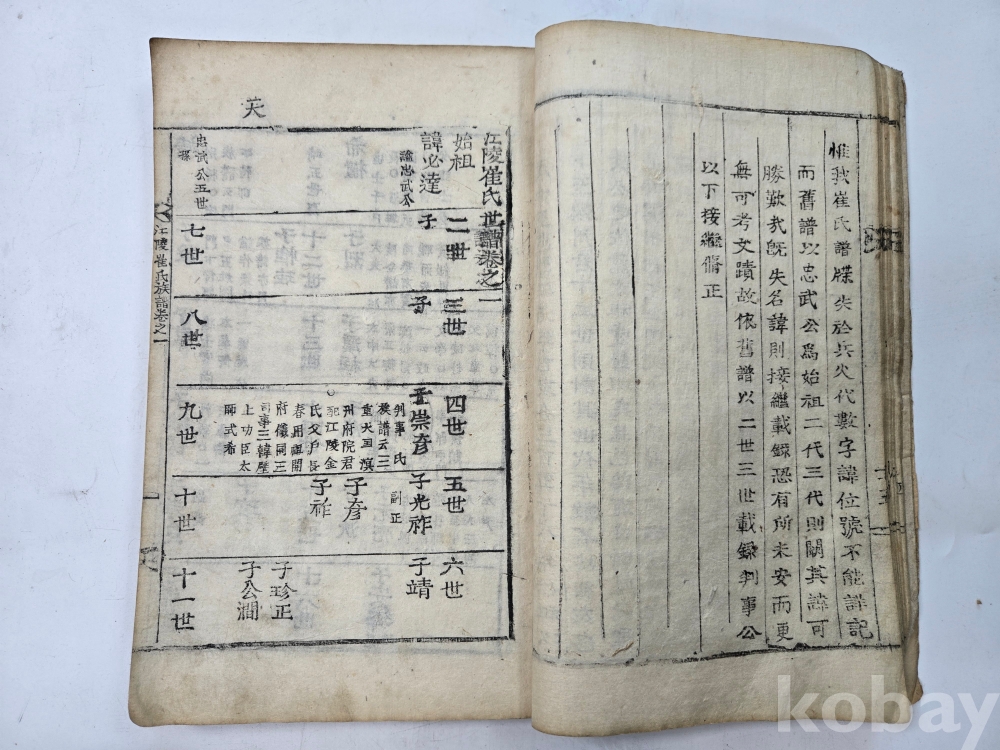 惟我崔氏譜牒失於兵火代數字諱位號不能詳記
而舊譜以忠武公爲始祖二代三代則闕其諱可
勝歎哉旣失名諱則接繼載錄恐有所未安而更
無可考文蹟故依舊譜以二世三世載錄判事公
以下接繼脩正
江陵崔氏世譜卷之一
始祖
諱必達
諡忠武公
忠武公五世
二世
子
三世
子
四世
子崇彦
判事 氏
族譜云三
重大匡濱
刑府院君
配江陵金
氏父戶長
春用祖開
府儀同三
司事三韓壁
上功臣太
師式希
五世
子光祚
副正
子彦
子祚
六世
子靖
子珍正
子公澗
七世
八世
九世
十世
十一世
江陵崔氏族譜卷之一
天
kobay